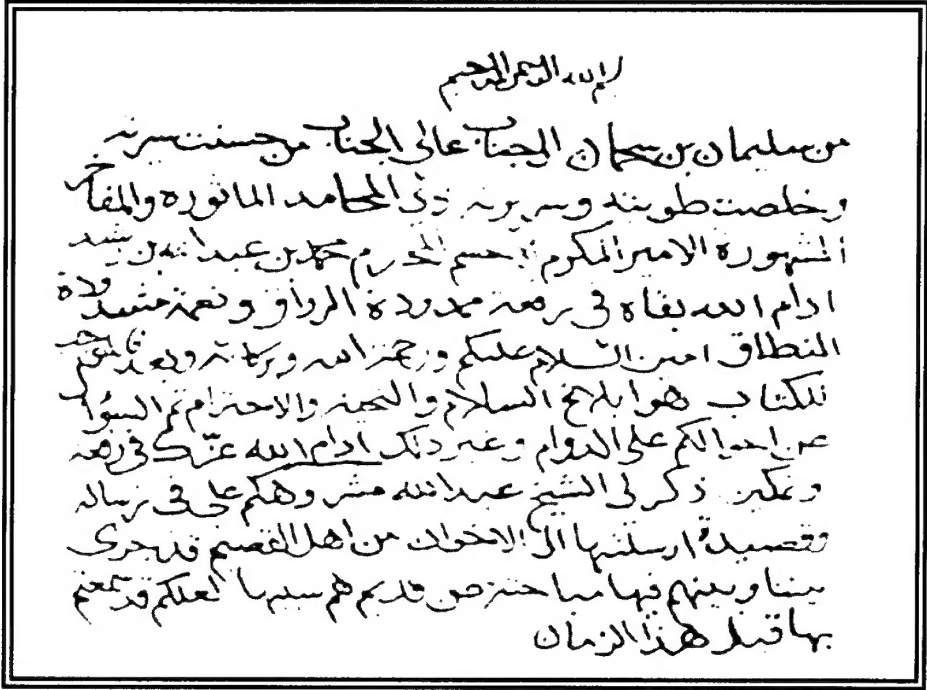 بسم الله الرحمن الرحيم
من سليمان بن سحمان الى جناب عالى الجناب من حسنت سيرته
وخلصت طويته وسريرته ذى المحامد الماثوره والمفاخر
المشهورة الامير المكرم الاحشم المحترم محمد بن عبد الله بن رشيد
ادام الله بقاه فى رفعة ممدودة الرواق ونعمة مشدودة
النطاق امين السلام عليكم ورحمة الله وبركاته وبعد
للكتاب هو ابلاغ السلام والتحيه والاحترام ثم السؤال
عن احوالكم على الدوام وغير ذلك ادام الله عزك فى رفعه
وتمكين ذكر لى الشيخ عبد الله فى رساله
وقصيدة ارسلتها الى الاخوان من اهل القصيم قد جرى
بيننا وبينهم فيها مباحثة من قديم هم سببها لعلكم قد سمعتم
بها قبل هذا الزمان